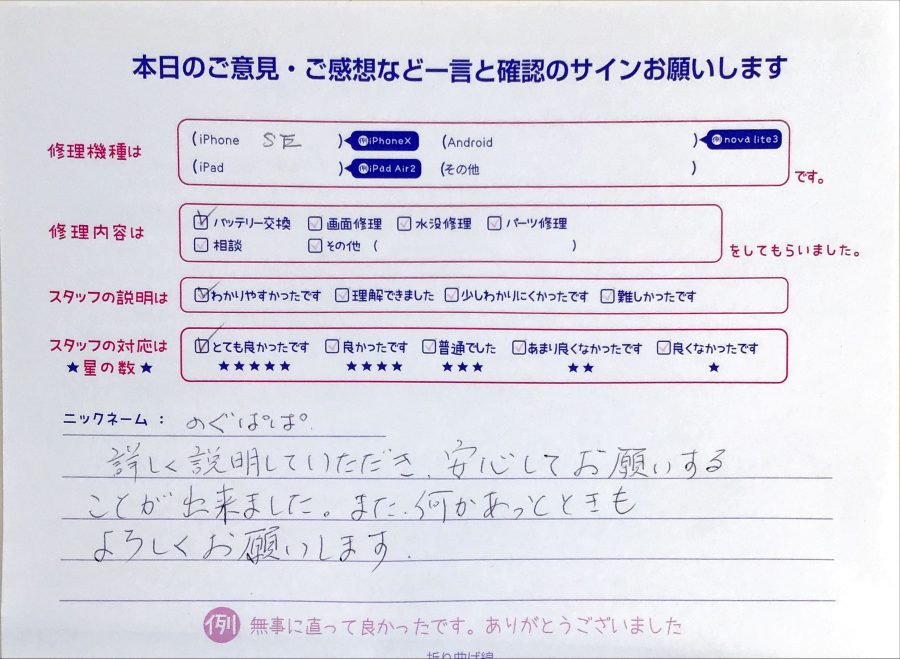 本日のご意見・ご感想など一言と確認のサインお願いします
修理機種は
(iPhone SE ) iPhoneX (Android ) nova lite3
(iPad ) iPad Air2 (その他 )
です。
修理内容は
バッテリー交換 画面修理 水没修理 パーツ修理
相談 その他 ( )
をしてもらいました。
スタッフの説明は
わかりやすかったです 理解できました 少しわかりにくかったです 難しかったです
スタッフの対応は
★星の数★
とても良かったです 良かったです 普通でした あまり良くなかったです 良くなかったです
★★★★★ ★★★★ ★★★ ★★ ★
ニックネーム： のぐぱぱ
詳しく説明していただき、安心してお願いする
ことが出来ました。また、何かあっとときも
よろしくお願いします.
例 無事に直って良かったです。ありがとうございました
折り曲げ線